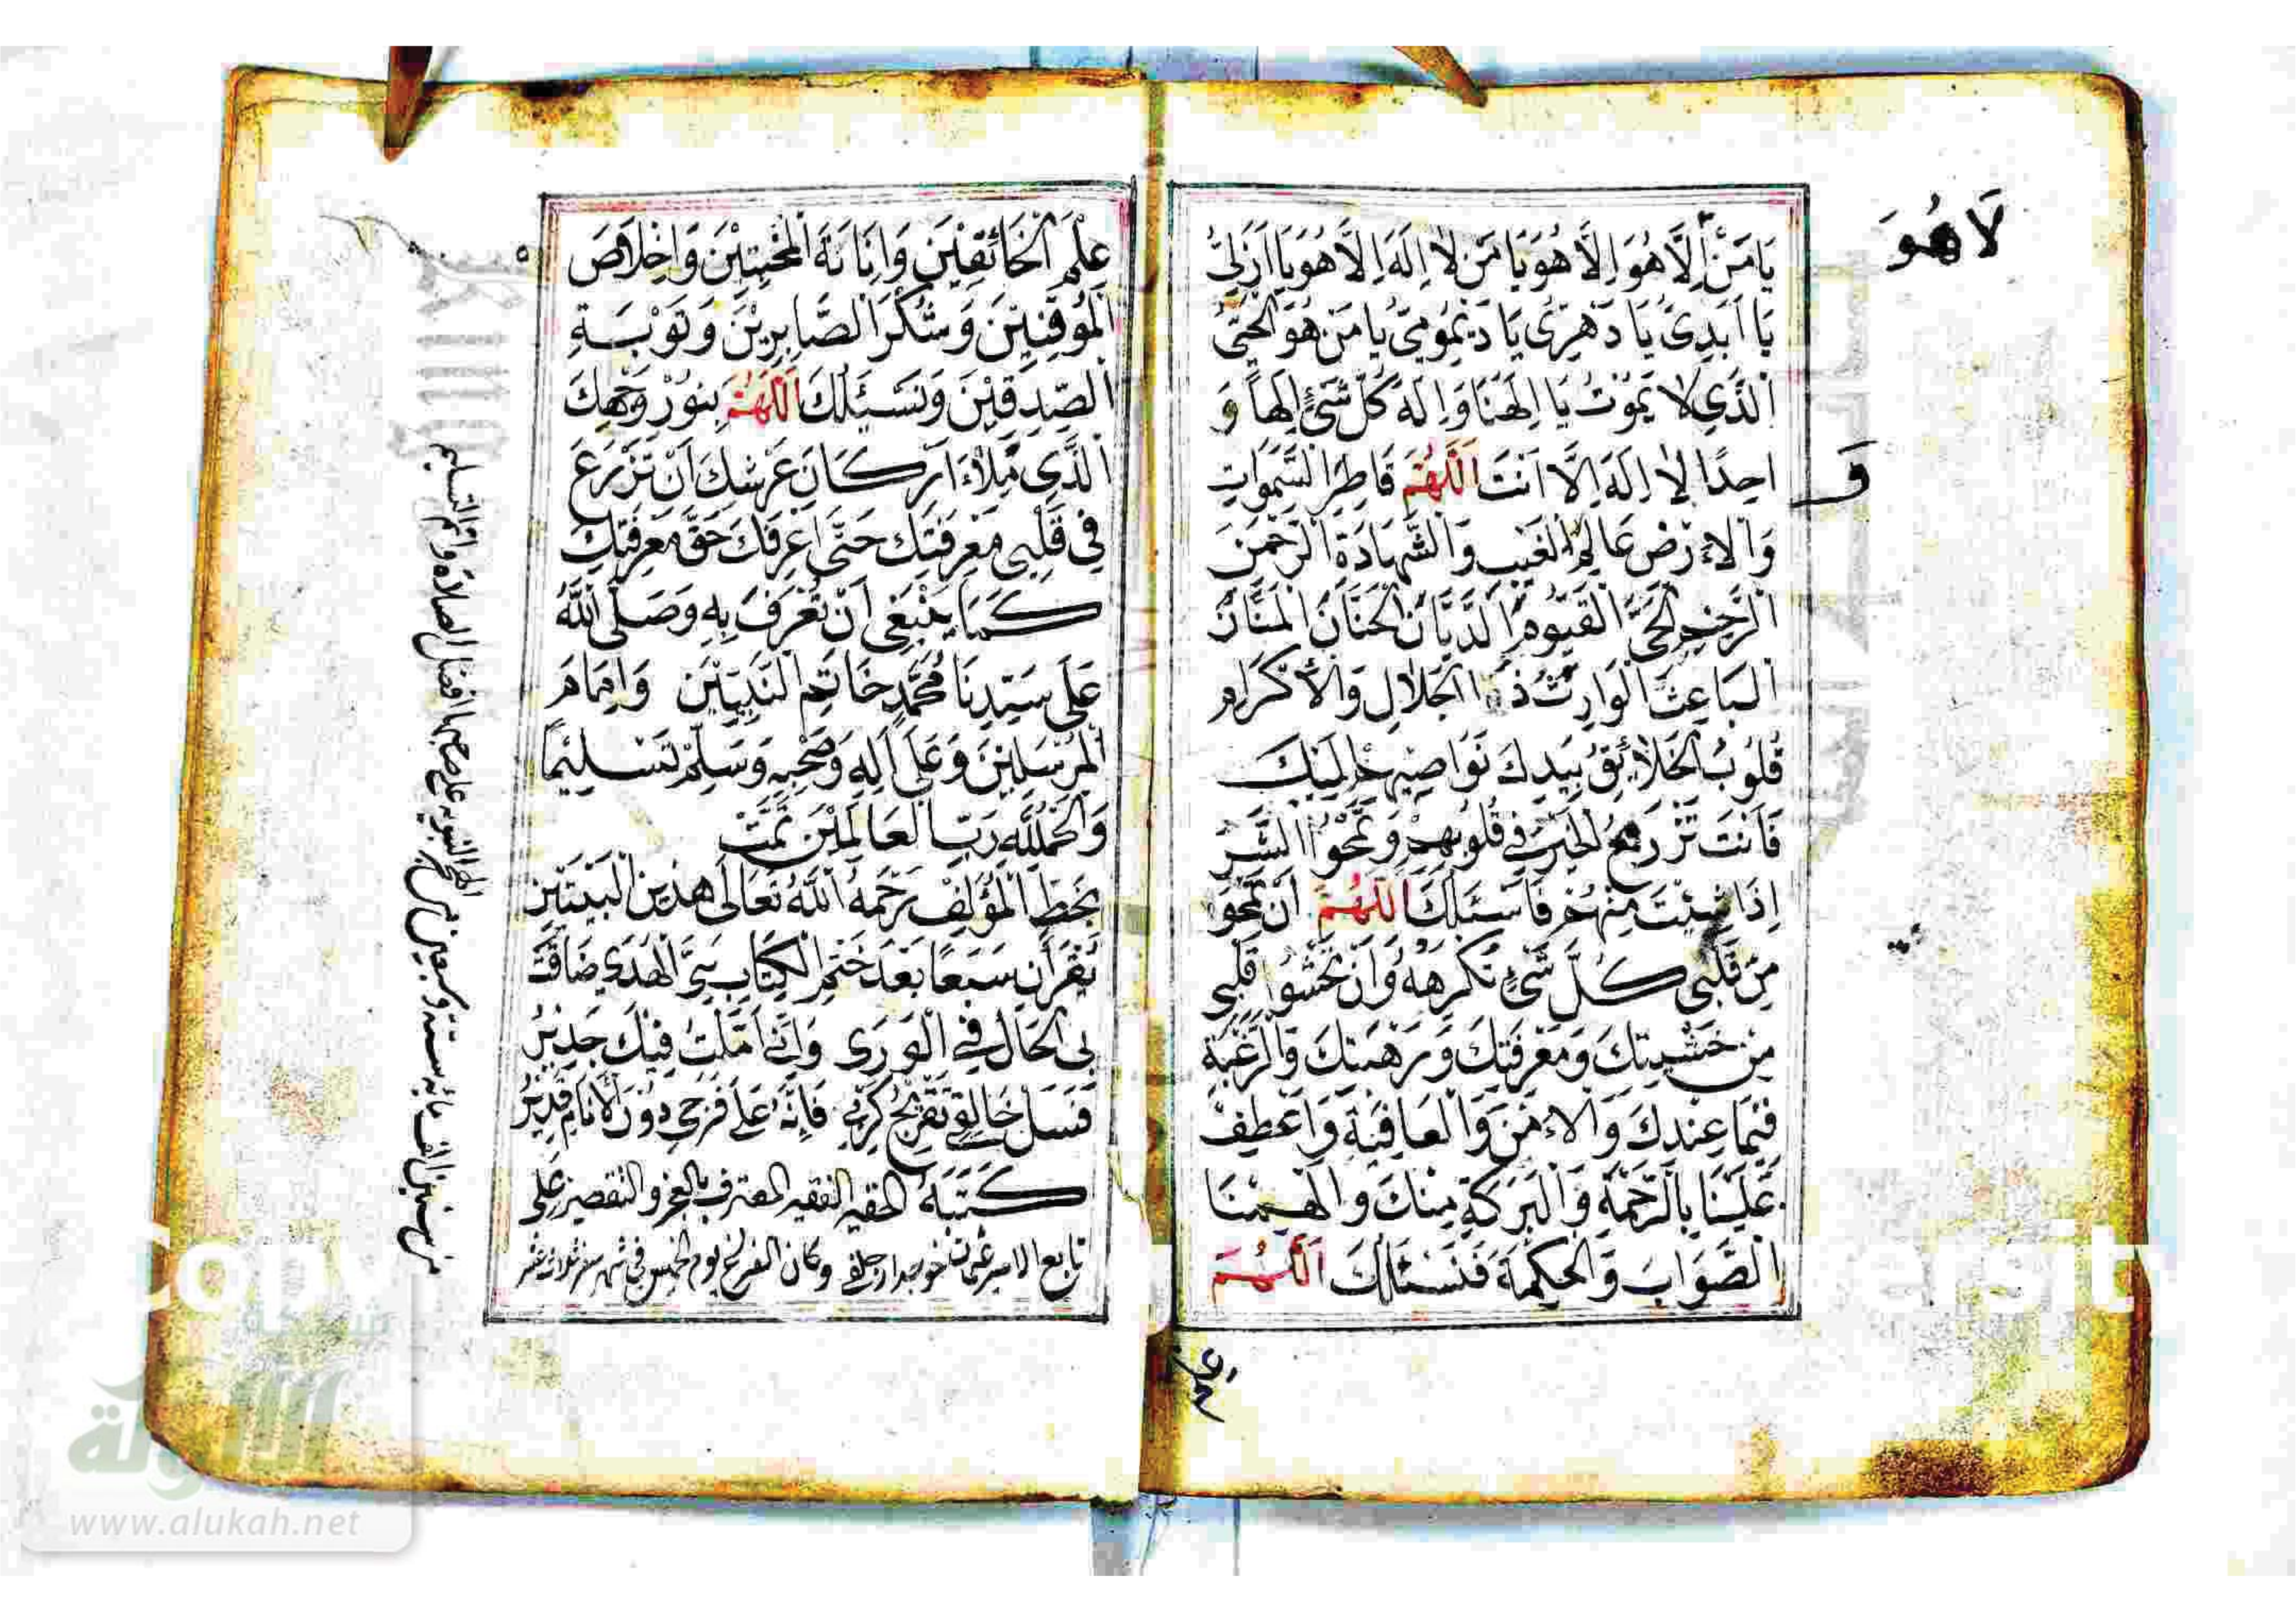 لَا هُوَ
يَا مَنْ إِلَّا هُوَ إِلَّا هُوَ يَا مَنْ لَا إِلَهَ إِلَّا هُوَ يَا أَزَلِيُّ
يَا أَبَدِيُّ يَا دَهْرِيُّ يَا دَيْمُومِيُّ يَا مَنْ هُوَ الْحَيُّ
الَّذِي لَا يَمُوتُ يَا إِلَهَنَا وَإِلَهَ كُلِّ شَيْءٍ إِلَهًا وَ
وَ
احِدًا لَا إِلَهَ إِلَّا أَنْتَ اَللَّهُمَّ فَاطِرَ السَّمَوَاتِ
وَالْاَرْضِ عَالِمَ الْغَيْبِ وَالشَّهَادَةِ الرَّحْمَنَ
الرَّحِيمَ الْحَيَّ الْقَيُّومَ الدَّيَّانَ الْحَنَّانَ الْمَنَّانَ
الْبَاعِثَ الْوَارِثَ ذَا الْجَلَالِ وَالْأِكْرَامِ
قُلُوبُ الْخَلَائِقِ بِيَدِكَ نَوَاصِيهِمْ إِلَيْكَ
فَأَنْتَ تَزْرَعُ الْخَيْرَ فِي قُلُوبِهِمْ وَتَمْحُوا الشَّرَّ
إِذَا شِئْتَ مِنْهُمْ فَأَسْئَلُكَ اللَّهُمَّ أَنْ تَمْحُوَ
مِنْ قَلْبِي كُلَّ شَيْءٍ تَكْرَهُهُ وَأَنْ تَحْشُوَا قَلْبِي
مِنْ خَشْيَتِكَ وَمَعْرِفَتِكَ وَرَهْبَتِكَ وَالرَّغْبَةِ
فِيمَا عِنْدَكَ وَالْاَمْنَ وَالْعَافِيَةَ وَاعْطِفْ
عَلَيْنَا بِالرَّحْمَةِ وَالْبَرَكَةِ مِنْكَ وَالْهِمْنَا
الصَّوَابَ وَالْحِكْمَةَ فَنَسْئَالُكَ اَللَّهُمَّ
عِلْمَ الْخَائِفِينَ وَإِنَابَةَ الْمُخْبِتِينَ وَإِخْلَاصَ
الْمُوقِنِينَ وَشُكْرَ الصَّابِرِينَ وَتَوْبَةَ
الصِّدِقِينَ وَنَسْئَلُكَ اَللَّهُمَّ بِنُورِ وَجْهِكَ
الَّذِي مَلَاءَ اَرْكَانَ عَرْشِكَ اَنْ تَزْرَعَ
فِي قَلْبِي مَعْرِفَتِكَ حَتَّى أَعْرِفَكَ حَقَّ مَعْرِفَتِكَ
كَمَا يَنْبَغِي اَنْ تُعْرَفَ بِهِ وَصَلَّى اللَّهُ
عَلَى سَيِّدِنَا مُحَمَّدٍ خَاتَمِ النَّبِيِّينَ وَإِمَامِ
الْمُرْسَلِينَ وَعَلَى آلِهِ وَصَحْبِهِ وَسَلِّمْ تَسْلِيمًا
وَالْحَمْدُ لِلَّهِ رَبِّ الْعَالَمِينَ تَمَّتْ
بِخَطِّ الْمُؤَلِّفِ رَحِمَهُ اللَّهُ تَعَالَى هذين الْبَيْتَيْنِ
تُقْرَآنِ سَبْعًا بَعْدَ خَتْمِ الْكِتَابِ نَبِيَّ الْهُدَى ضَاقَتْ
بِيَ الْحَالُ فِي الْوَرَى وَإِنِّي أَمَّلْتُ فِيكَ جَدِيرُ
فَسَلْ خَالِقِي تَفْرِيجَ كَرْبِي فَإِنَّهُ عَلَى فَرَجِي دُونَ الْأَنَامِ قَدِيرُ
كَتَبَهُ الحقير الفقير المعترف بالعجز والتقصير علي
تابع الامير عثمان وكان الفراغ يوم الخميس في شهر صفر ثلاث عشر
من سنين الف مائة ستة وسبعين من الهجرة النبوية على صاحبها افضل الصلاة واتم التسليم
شبكة
الألوكة
www.alukah.net